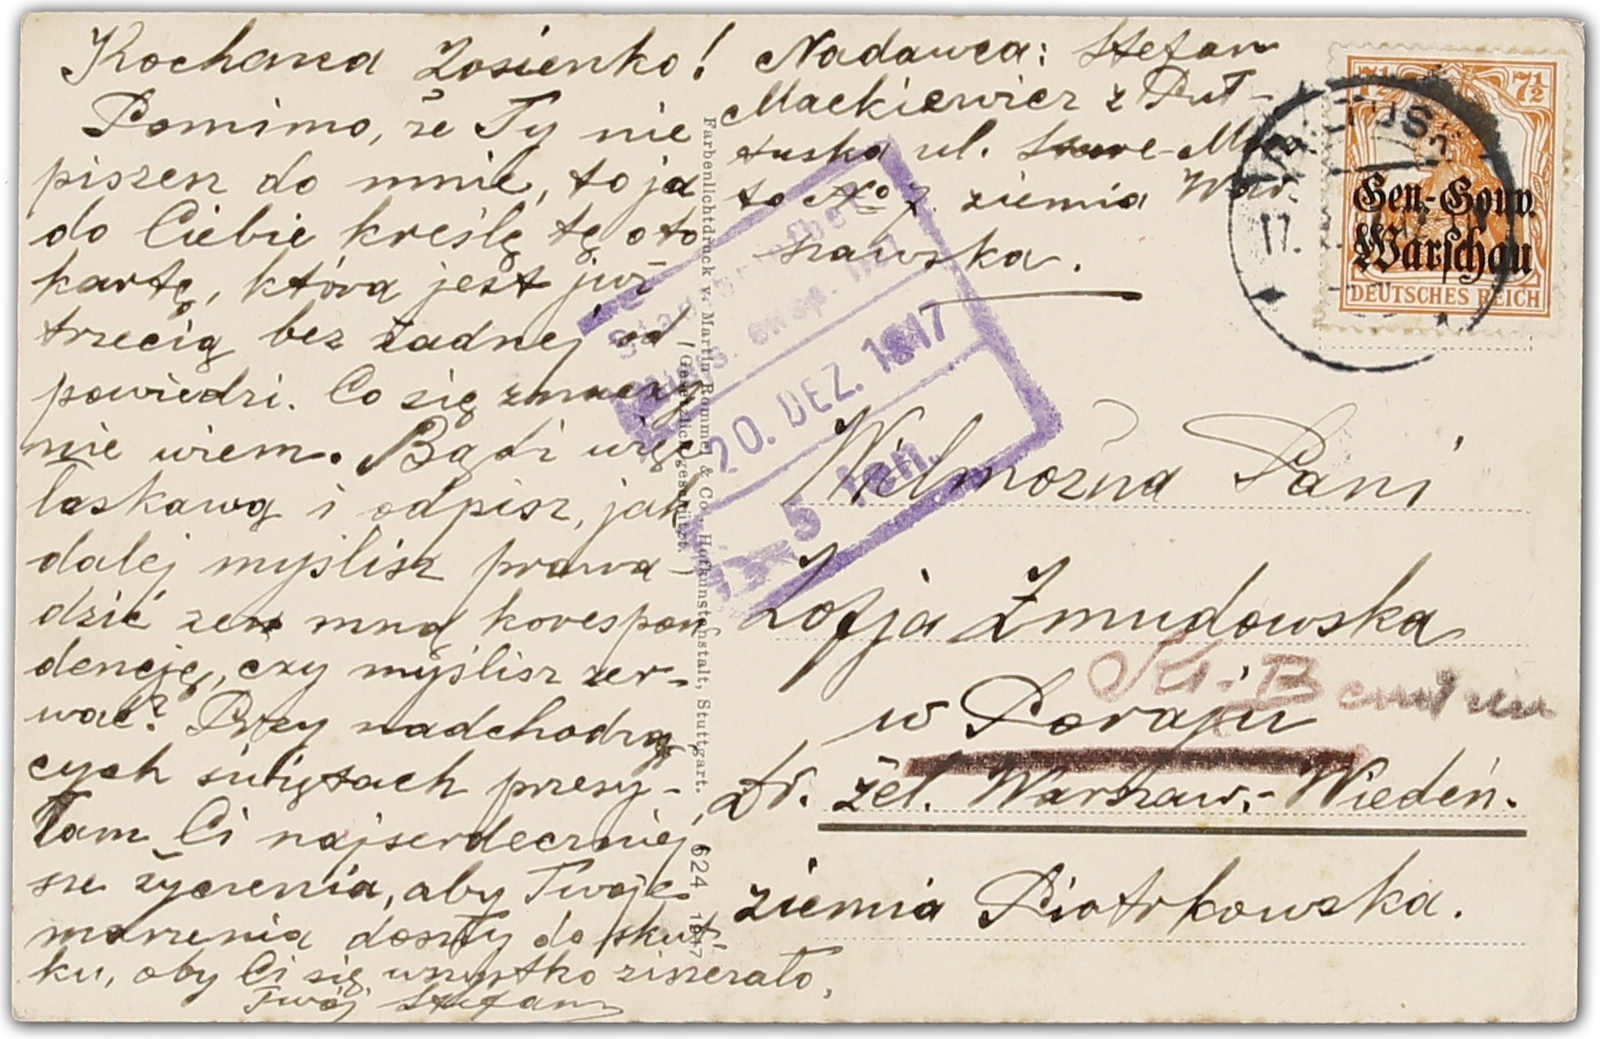 Kochana Zosieńko!
Pomimo, że Ty nie
piszesz do mnie, to ja
do Ciebie kreślę tę oto
kartę, która jest już
trzecią bez żadnej od
powiedzi. Co się znaczy
nie wiem. Bądź więc
łaskawą i odpisz, jak
dalej myślisz prowa-
dzić ze mną korespon
dencję, czy myślisz zer-
wać? Przy nadchodzą
cych świętach przesy-
łam Ci najserdeczniej
sze życzenia, aby Twoje
marzenia doszły do skut
ku, aby Ci się wszystko ziszczało,
Twój Stefan
Nadawca: Stefan
Mackiewicz z Puł-
tuska ul. Stare-Mia
sto No 7. ziemia War
szawska.
Farbenlichtdruck v. Martin Rommel & Co., Hofkunstanstalt, Stuttgart.
Gesetzlich geschützt.
624 1917
20. DEZ. 1917
5 Fen.
7½ 7½
Gen.-Gouv.
Warschau
DEUTSCHES REICH
PULTUSK
17.
Wielmożna Pani
Zofja Żmudowska
w Poraju
Kr. Bendzin
Dr. żel. Warszaw.-Wiedeń.
ziemia Piotrkowska.